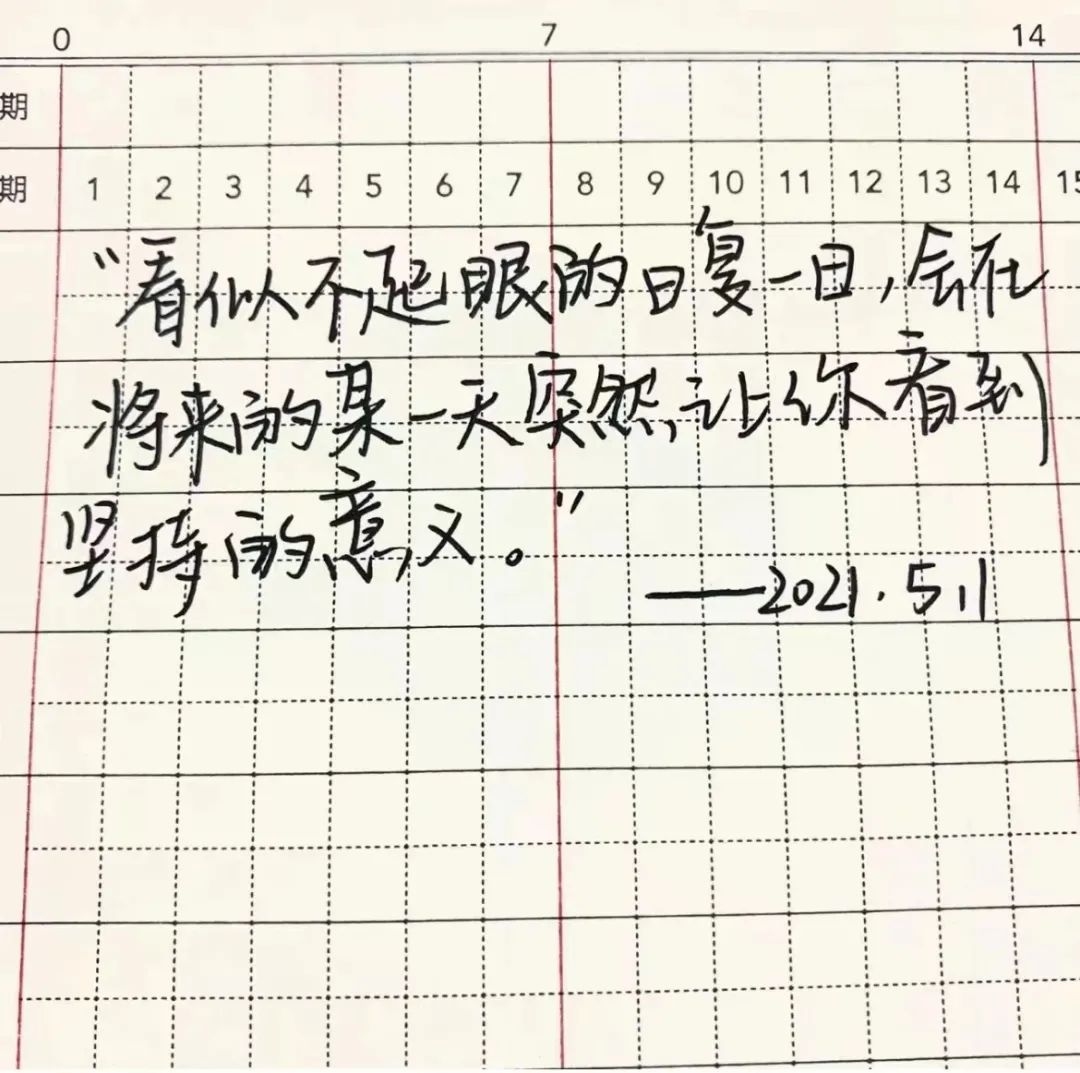 0 7 14
期
期 1 2 3 4 5 6 7 8 9 10 11 12 13 14 15
“看似不起眼的日复一日，会在
将来的某一天突然让你看到
坚持的意义。”
——2021.5.1